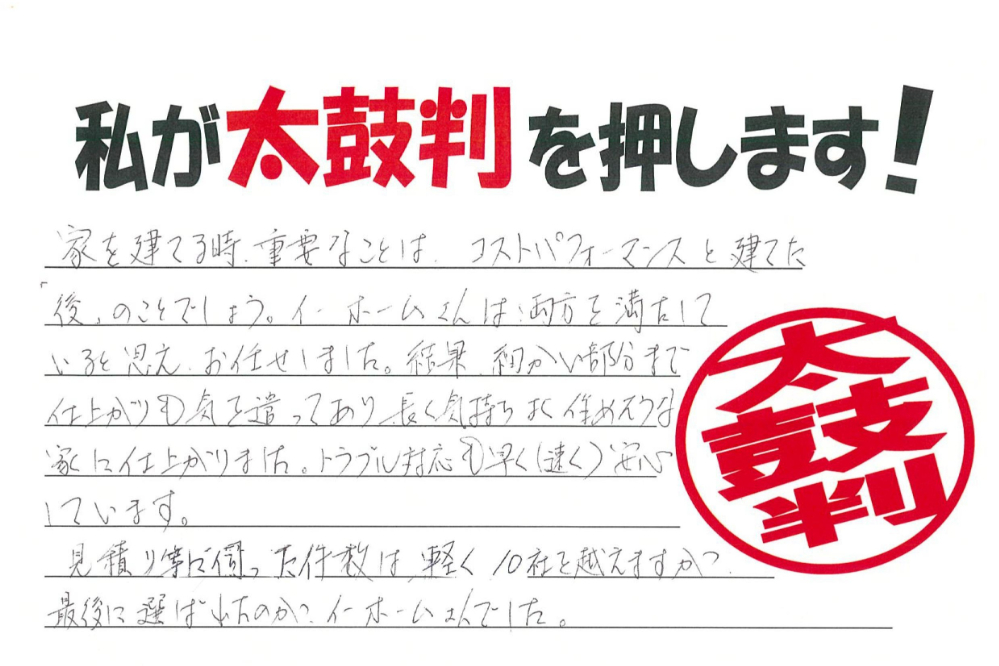 私が太鼓判を押します!
家を建てる時、重要なことは、コストパフォーマンスと建てた
「後」のことでしょう。イーホームさんは両方を満たして
いると思え、お任せしました。結果、細かい部分まで
仕上がりも気を遣ってあり長く気持ちよく住めそうな
家に仕上がりました。トラブル対応も早く(速く)安心
しています。
見積り等に伺った件数は軽く10社を越えますが、
最後に選ばれたのが、イーホームさんでした。
太鼓判